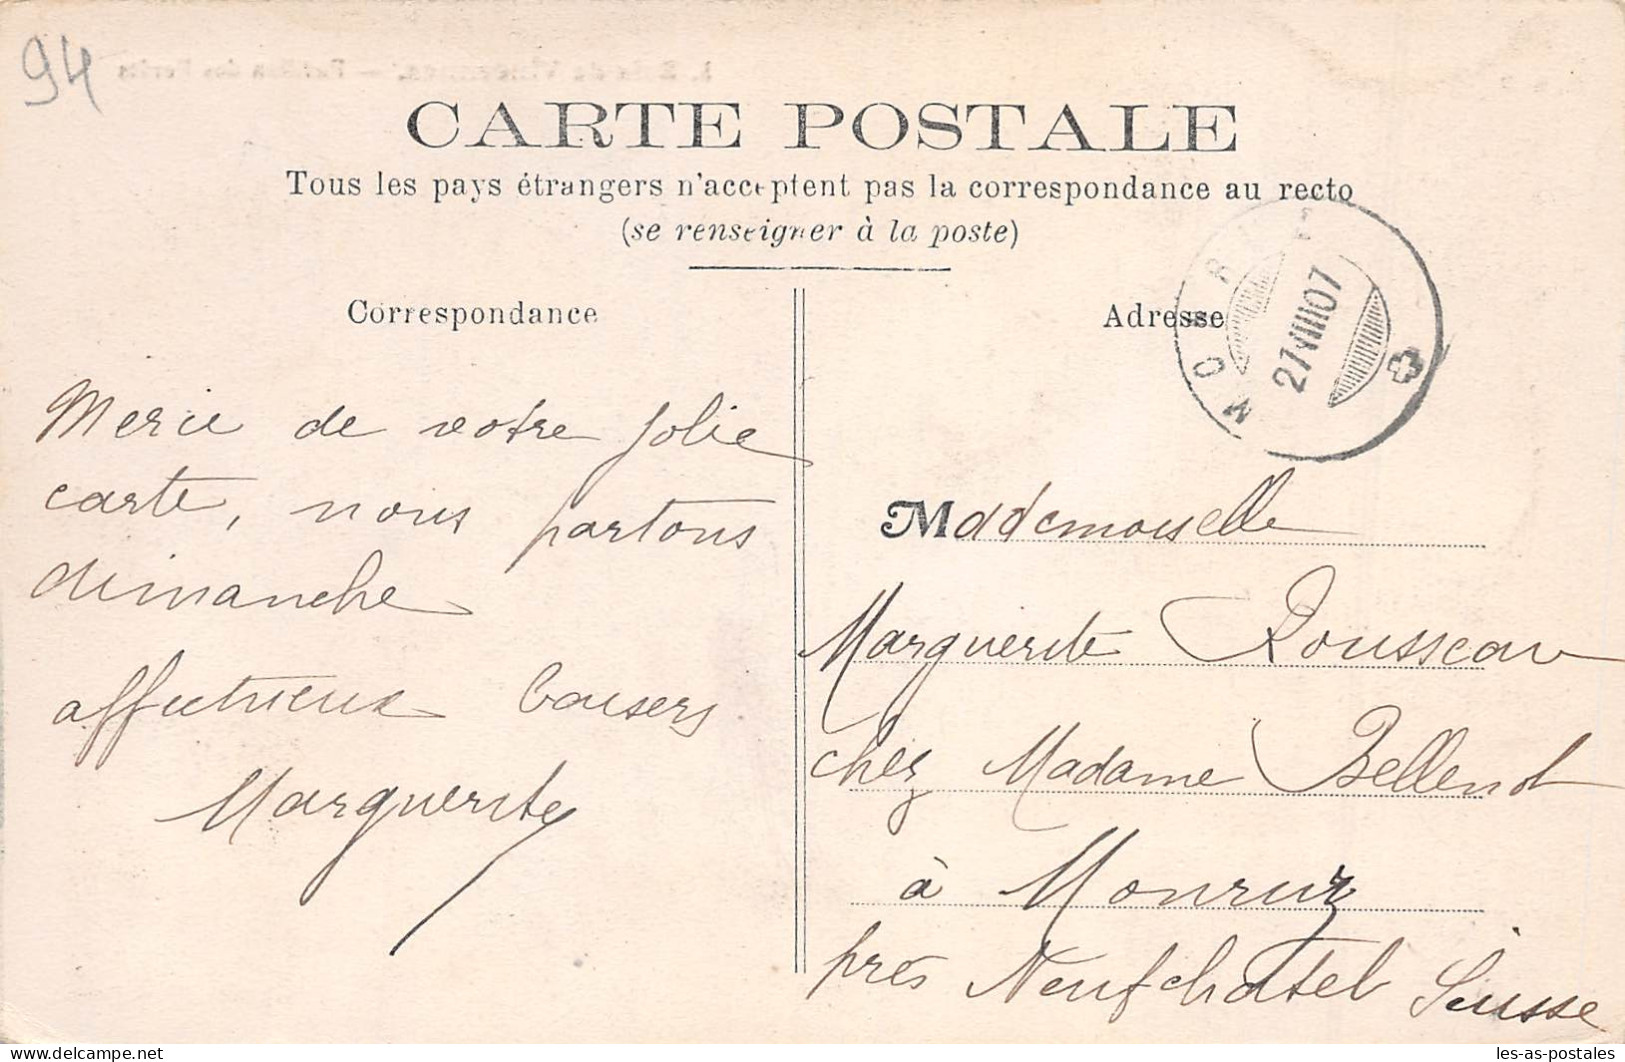 94
CARTE POSTALE
Tous les pays étrangers n'acceptent pas la correspondance au recto
(se renseigner à la poste)
Correspondance
Adresse
27 VIII 07
Mercie de votre jolie
carte, nous partons
dimanche
affectueux baisers
Marguerite
Mademoiselle
Marguerite Rousseau
chez Madame Bellenot
à Monruz
près Neufchatel Suisse
les-as-postales
delcampe.net